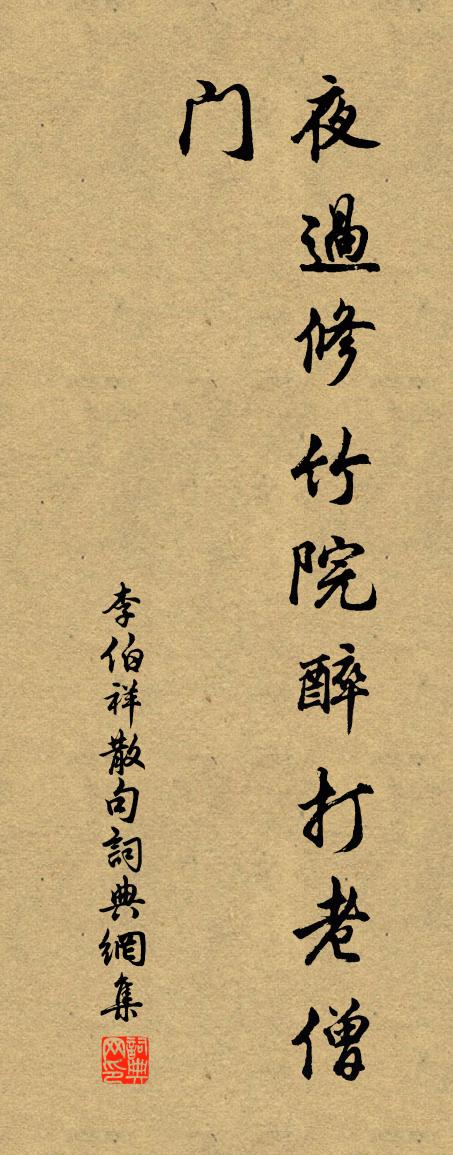 夜過修竹院醉打老僧
门
李伯祥散句詞典網集
詞典
网印